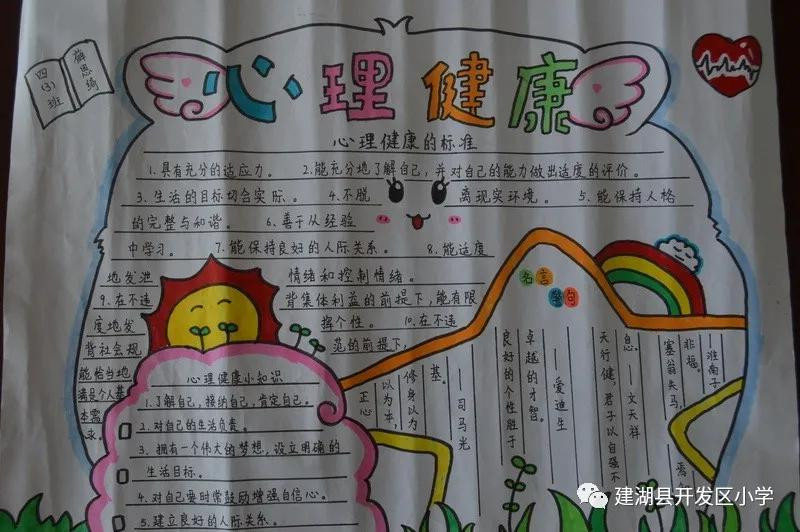 四(3)班
薛思琦
心理健康
心理健康的标准
1.具有充分的适应力。 2.能充分地了解自己,并对自己的能力做出适度的评价。
3.生活的目标切合实际。 4.不脱离现实环境。 5.能保持人格
的完整与和谐。 6.善于从经验
中学习。 7.能保持良好的人际关系。 8.能适度
地发泄情绪和控制情绪。
9.在不违背集体利益的前提下,能有限
度地发挥个性。 10.在不违
背社会规范的前提下,
能恰当地
满足个人基
本需
求。
心理健康小知识
1.了解自己,接纳自己,肯定自己。
2.对自己的生活负责。
3.拥有一个伟大的梦想,设立明确的
生活目标。
4.对自己要时常鼓励增强自信心。
5.建立良好的人际关系。
名言警句
正心
以为本,
修身以为
基。
——司马光
良好的个性胜于
卓越的才智。
——爱迪生
天行健,君子以自强不
息。——文天祥
塞翁失马,焉
非福。
——淮南子
建湖县开发区小学